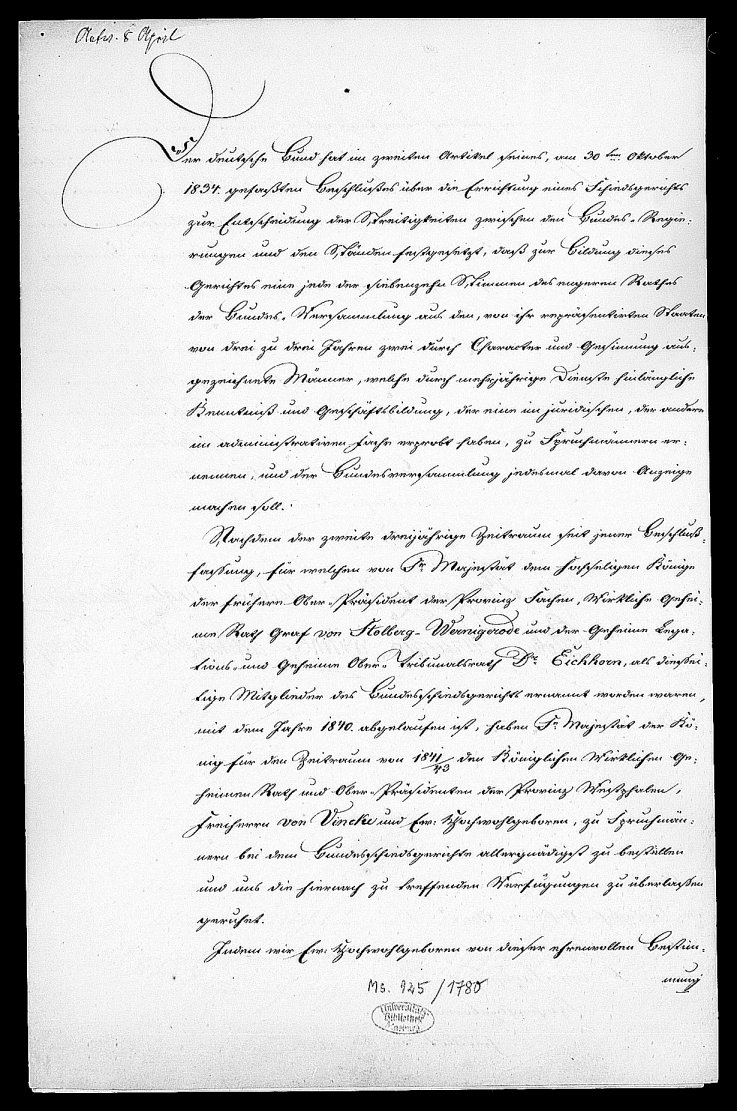 Actu. 8 April
Der deutsche Bund hat im zweiten Artikel seines, am 30 ten Oktober
1834. gefaßten Beschlußes über die Errichtung eines Schiedsgerichts
zur Entscheidung der Streitigkeiten zwischen den Bundes-Regie-
rungen und den Ständen festgesetzt, daß zur Bildung dieses
Gerichtes eine jede der siebenzehn Stimmen des engeren Rathes
der Bundes-Versammlung aus den, von ihr repräsentirten Staaten
von drei zu drei Jahren zwei durch Character und Gesinnung aus-
gezeichnete Männer, welche durch mehrjährige Dienste hinlängliche
Kenntniß und Geschäftsbildung, der eine im juridischen, der andere
im administrativen Fache erprobt haben, zu Spruchmännern er-
nennen, und der Bundesversammlung jedesmal davon Anzeige
machen soll.
Nachdem der zweite dreijährige Zeitraum seit jener Beschluß-
fassung, für welchen von Sr. Majestät dem Hochseligen Könige
der frühere Ober-Präsident der Provinz Sachsen, Wirkliche Gehei-
me Rath Graf von Stolberg-Wernigerode und der Geheime Lega-
tions- und Geheime Ober-Tribunalsrath Dr. Eichhorn, als diessei-
tige Mitglieder des Bundesschiedsgerichts ernannt worden waren,
mit dem Jahre 1840. abgelaufen ist, haben Sr. Majestät der Kö-
nig für den Zeitraum von 1841/43 den Königlichen Wirklichen Ge-
heimen Rath und Ober-Präsidenten der Provinz Westphalen,
Freiherrn von Vincke und Ew. Hochwohlgeboren, zu Spruchmän-
nern bei dem Bundesschiedsgerichte allergnädigst zu bestellen
und uns die hiernach zu treffenden Verfügungen zu überlassen
geruhet.
Indem wir Ew. Hochwohlgeboren von dieser ehrenvollen Bestim-
mung
Ms. 925/1780
Universitäts
Bibliothek